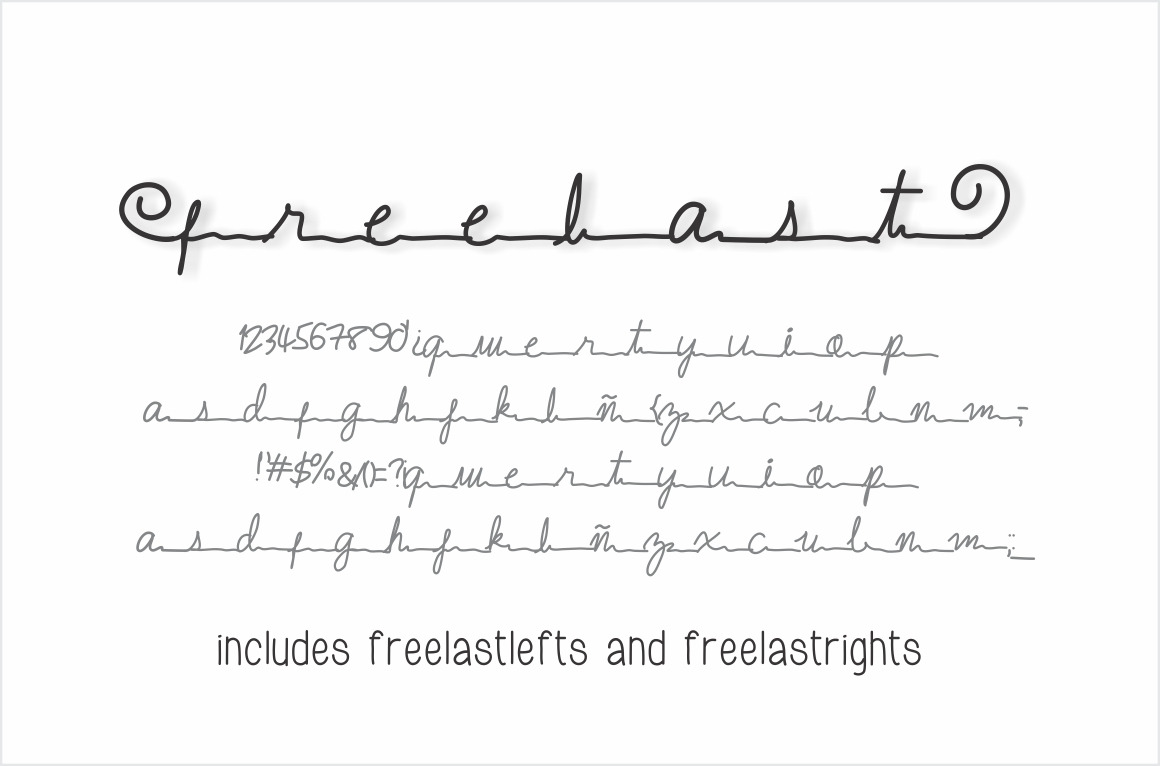 freelast
1234567890'¡qwertyuiop
asdfghjklñ{zxcvbnm,.-
!"#$%&/()=?qwertyuiop
asdfghjklñzxcvbnm;:_
includes freelastlefts and freelastrights